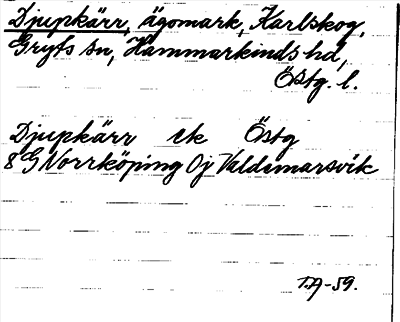 Djupkärr, ägomark, Karlskog,
Gryts sn, Hammarkinds hd,
Östg. l.
Djupkärr ek Östg
8 G Norrköping 0j Valdemarsvik
T.A-59.